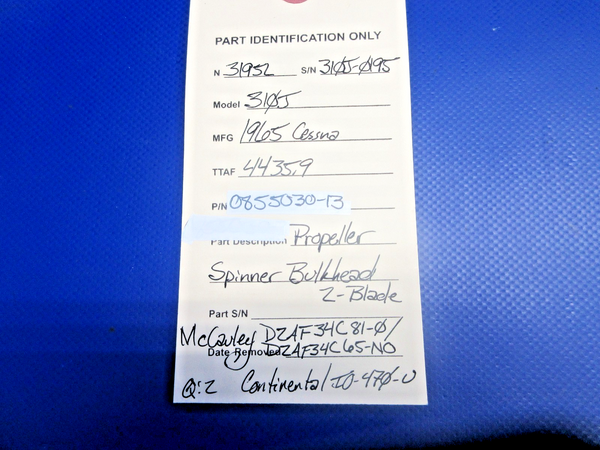 PART IDENTIFICATION ONLY
N 3195L S/N 310J-0195
Model 310J
MFG 1965 Cessna
TTAF 4435.9
P/N 0855030-13
Part Description Propeller
Spinner Bulkhead
2-Blade
Part S/N
McCauley D2AF34C81-0/
Date Removed D2AF34C65-NO
Q:2 Continental IO-470-U